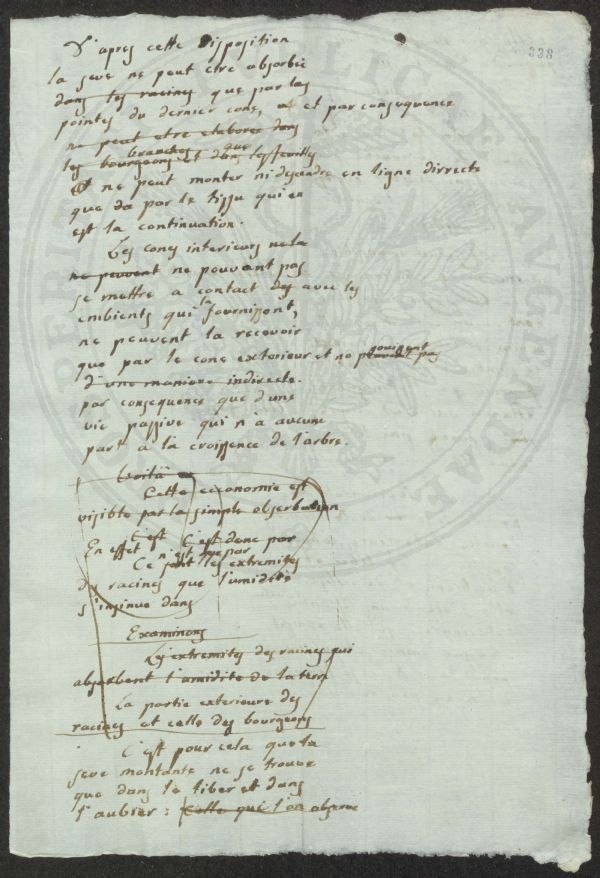 338
D'apres cette Disposition
la seve ne peut etre absorbée
dans les racines que par les
pointes du dernier cone, et et par consequence
ne peut etre elaboree dans
branches que
les bourgeons et dans les feuilles
Et ne peut monter ni desendre en ligne dirrecte
que da par le tissu qui en
est la continuation.
Les cones interieurs ne la
ne peuvent ne pouvant pas
se mettre a contact des avec les
embients qui la fournissent,
ne peuvent la recevoir
que par le cone exterieur et no jouissent pas
d'une maniere indirecte.
par consequence que d'une
vie passive qui n'à aucune
part à la croissence de l'arbre.
Voitià
Cette économie est
visible par la simple observation
C'est C'est donc par
En effet ce n'est que par
Ce sont les extremites
des racines que l'umidité
s'insinue dans
Examinons
Les extremites des racines qui
absorbent l'umidité de la terre
La partie exterieure des
racines et celle des bourgeons
C'est pour cela que la
seve montante ne se trouve
que dans le liber et dans
l'aubier : Celle qui l'on absorbe
PERITI PUBLICAE AUGENDAE